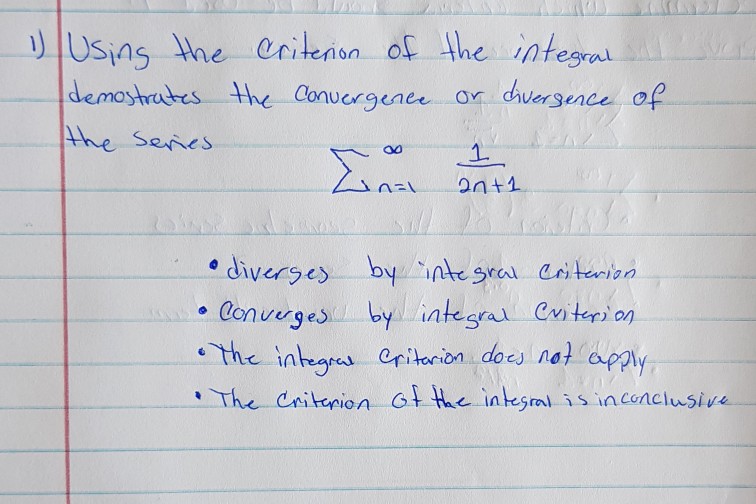 1) Using the criterion of the integral
demostrates the convergence or divergence of
the series
∑ n=1 ∞ 1/2n+1
• diverges by integral criterion
• Converges by integral Criterion
• The integral criterion does not apply
• The Criterion of the integral is inconclusive